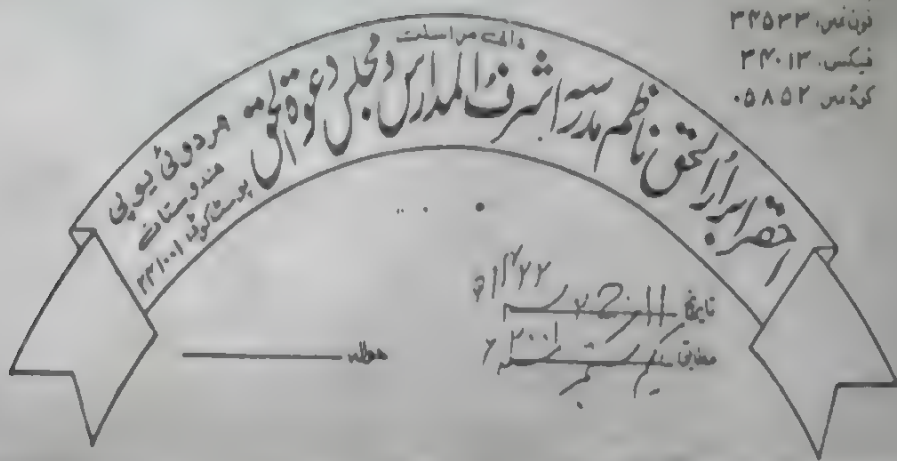 فون نمبر، ۳۲۵۳۳
فیکس، ۳۴۰۱۳
کوڈ نمبر ۰۵۸۵۲
ذاتی مراسلت
احقر ابرار الحق ناظم مدرسہ اشرف المدارس و مجلس دعوۃ الحق
ہردوئی یوپی
ہندوستان
پوسٹ کوڈ، ۲۴۱۰۰۱
تاریخ ۱۱ ۱۴۲۲ھ
مطابق یکم ستمبر ۲۰۰۱ء
حوالہ